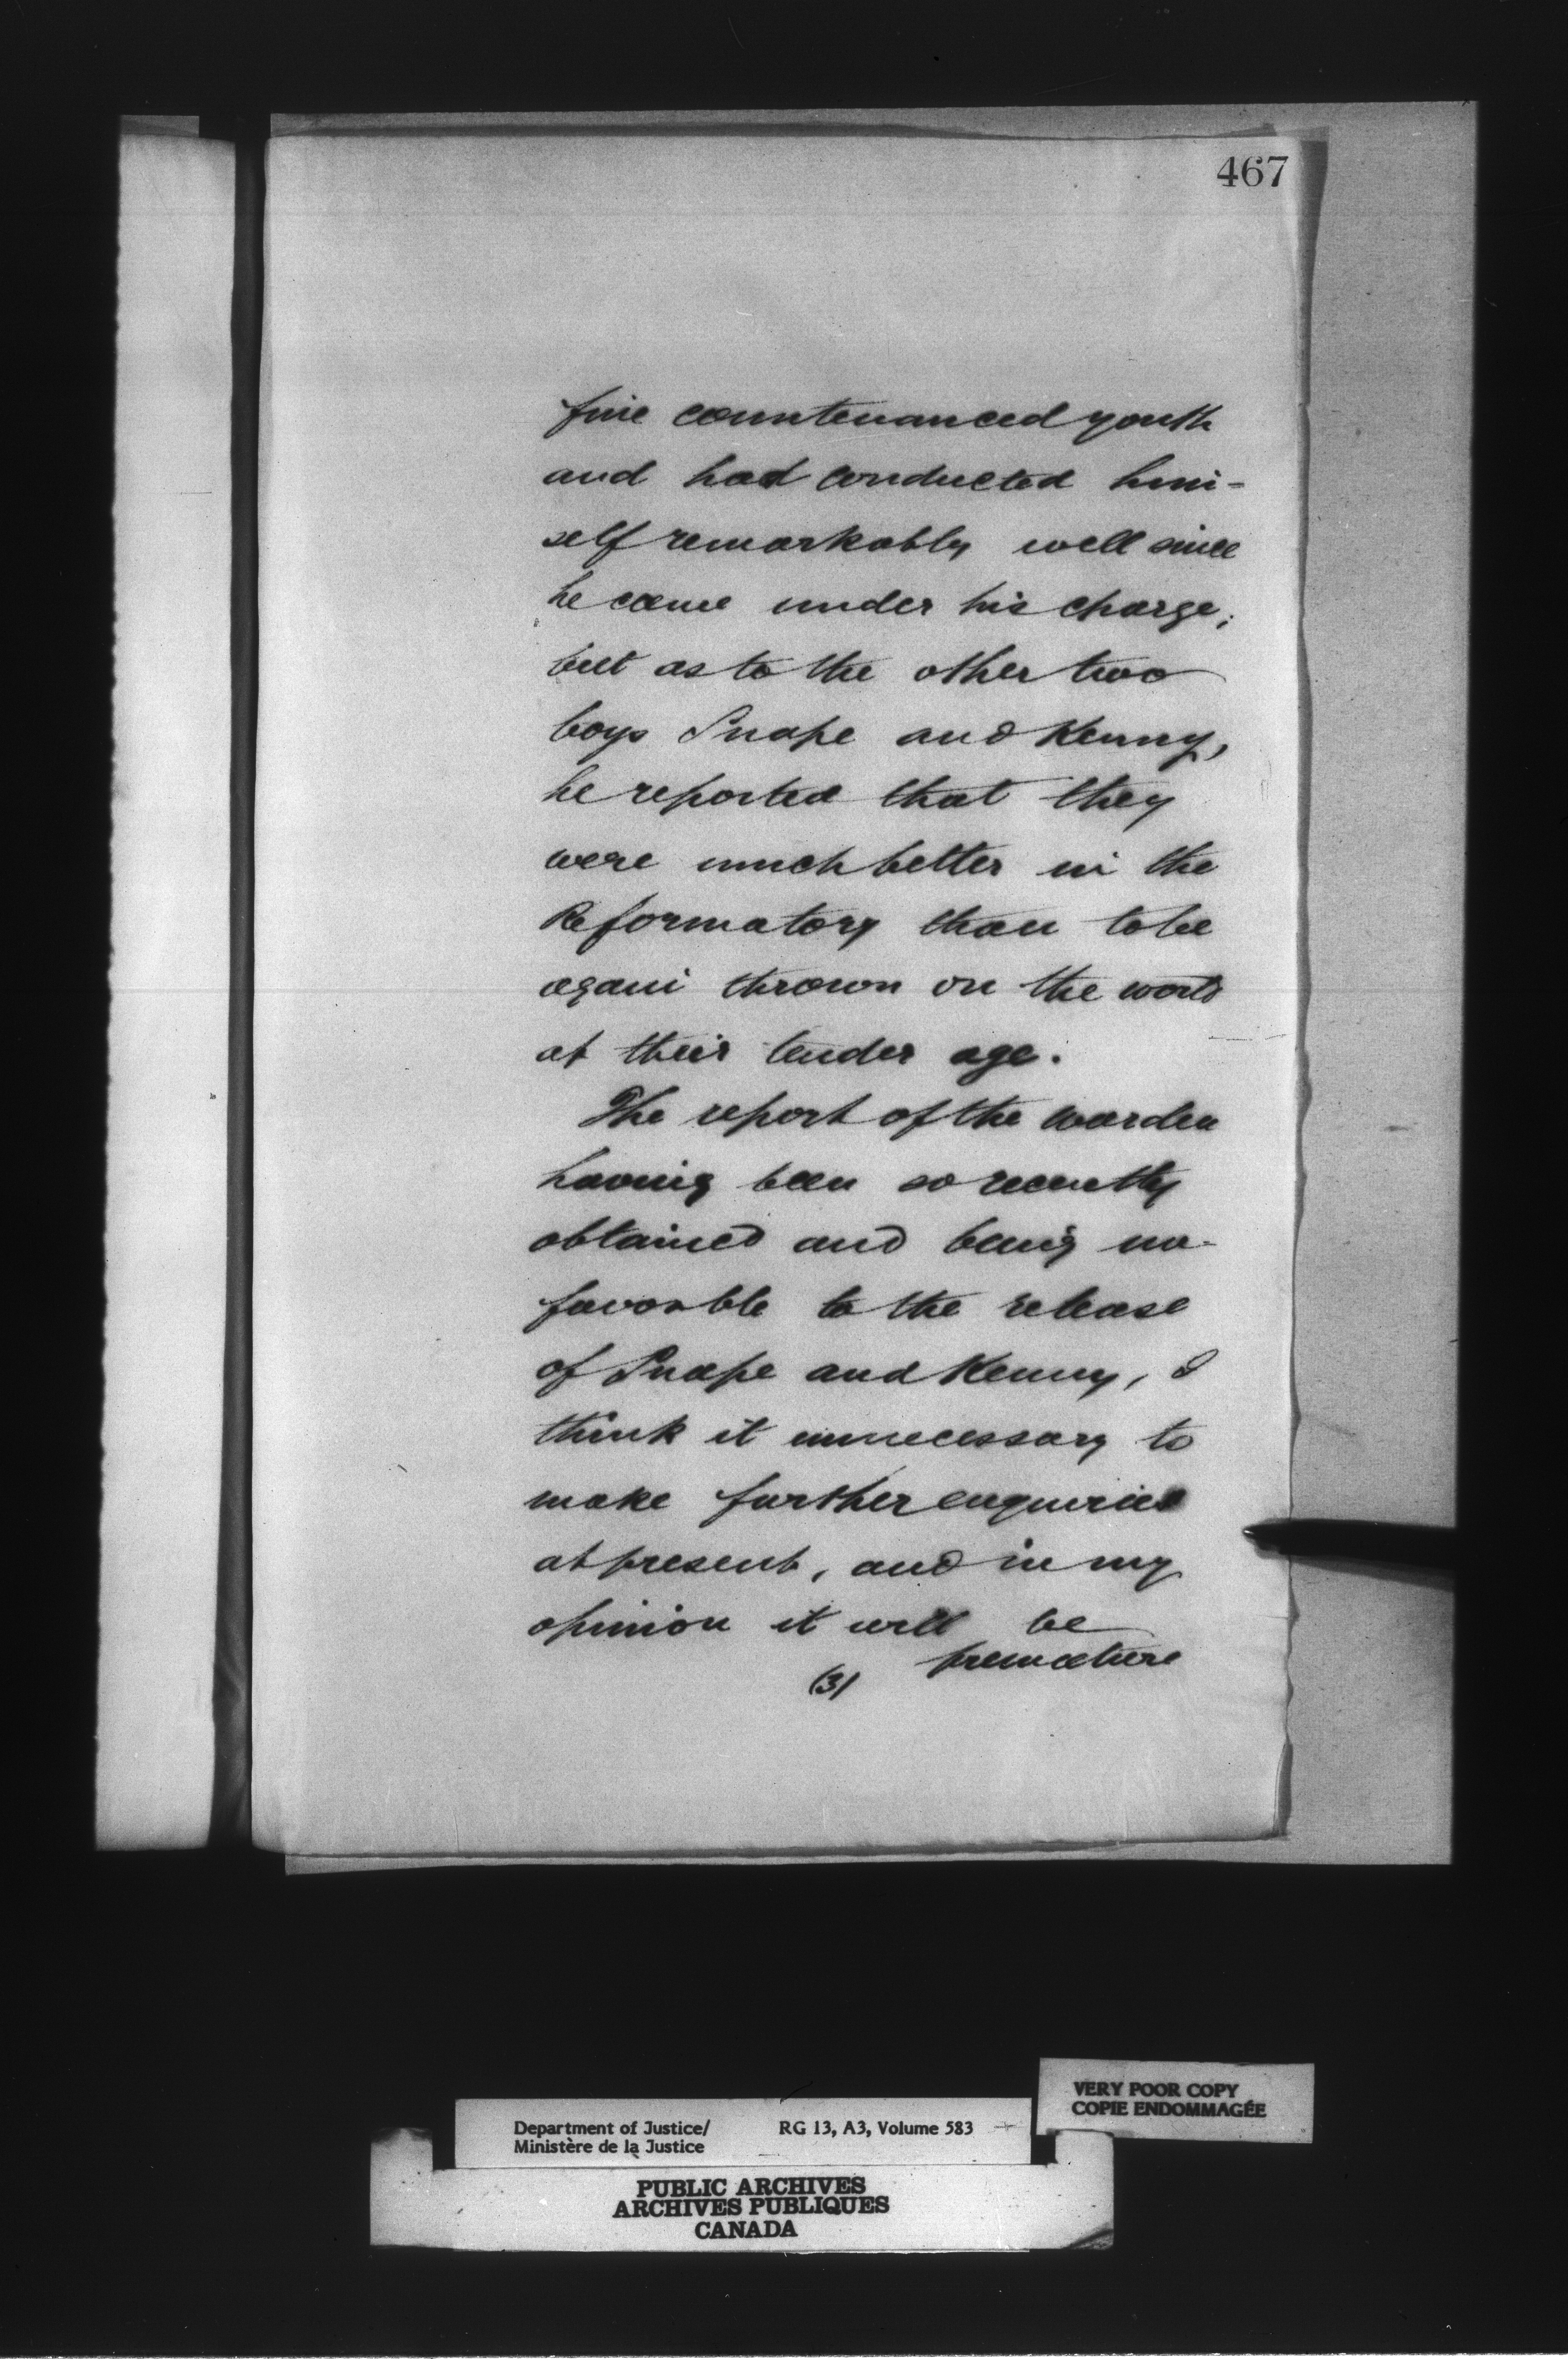 467
fine countenanced youth
and had conducted him-
self remarkably well since
he came under his charge;
but as to the other two
boys Snape and Kenny,
he reported that they
were much better in the
Reformatory than to be
again thrown on the world
at their tender age.
The report of the warden
having been so recently
obtained and being un-
favorable to the release
of Snape and Kenny, I
think it unnecessary to
make further enquiries
at present, and in my
opinion it will be
premature
(3)
VERY POOR COPY
COPIE ENDOMMAGÉE
Department of Justice/ RG 13, A3, Volume 583
Ministère de la Justice
PUBLIC ARCHIVES
ARCHIVES PUBLIQUES
CANADA